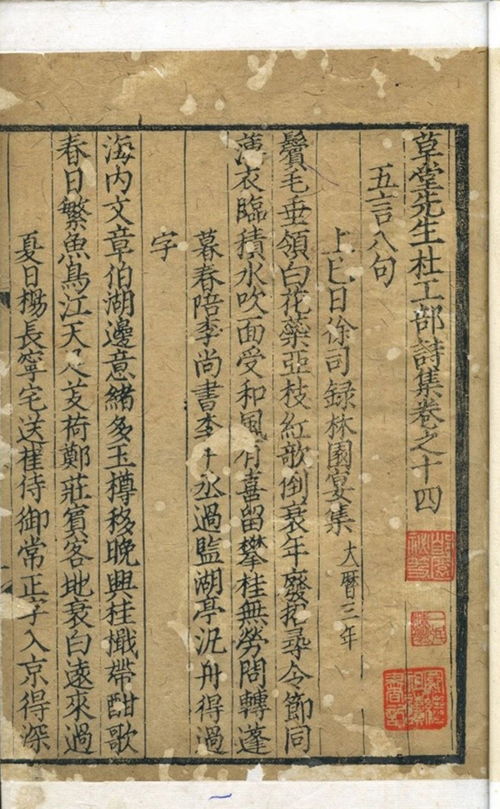 草堂先生杜工部詩集卷之十四
五言八句
上巳日徐司録林園宴集 大暦三年
鬢毛垂領白花藥亞枝紅欹倒衰年廢招尋令節同
薄衣臨積水吹面受和風有喜留攀桂無勞問轉蓬
暮春陪李尚書李中丞過監湖亭汎舟得過
字
海内文章伯湖邊意緒多玉樽移晚興桂檝帶酣歌
春日繁魚鳥江天足芰荷鄭莊賓客地衰白遠來過
夏日楊長寧宅送崔侍御常正字入京得深